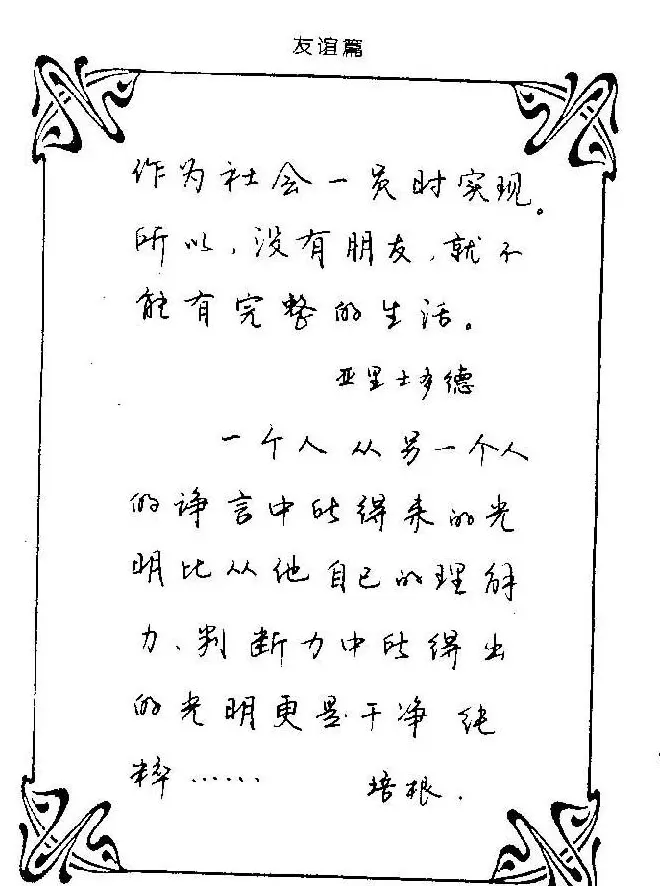 友谊篇
作为社会一员时实现。
所以,没有朋友,就不
能有完整的生活。
亚里士多德
一个人从另一个人
的诤言中所得来的光
明比从他自己的理解
力、判断力中所得出
的光明更是干净纯
粹……
培根.